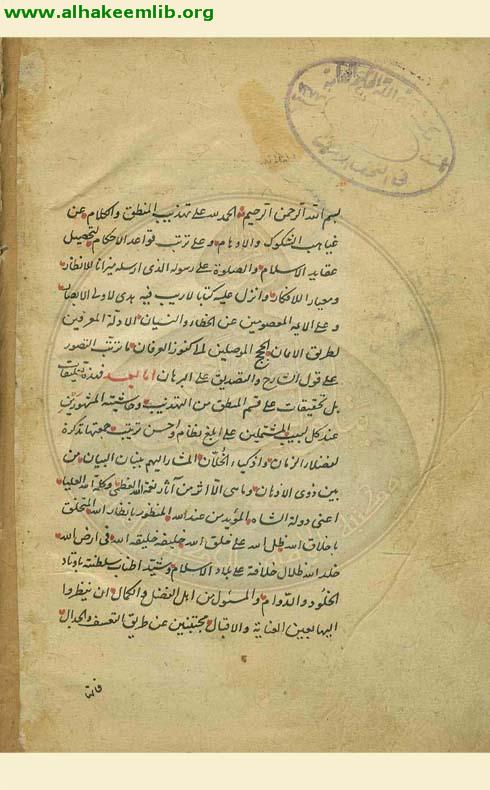 www.alhakeemlib.org
بسم الله الرحمن الرحيم الحمد لله على تهذيب المنطق والكلام عن
غياهب الشكوك والاوهام وعلى ترتب قواعد الاحكام لتحصيل
عقايد الاسلام والصلوة على رسوله الذى ارسله ميزانا للانظار
ومعيار الافكار وانزل عليه كتابا لا ريب فيه هدى لاولى الابصار
وعلى اله المعصومين عن الخطاء والنسيان الادلة المعرفين
لطريق الامان الحجج الموصلين لما كنوز العرفان ما ترتب التصور
على قول الشارح والتصديق على البرهان اما بعد فهذه تعليقات
بل تحقيقات على قسم المنطق من التهذيب وحاشيته المشهورتين
عند كل لبيب المشتملين على ابلغ نظام واحسن ترتيب جعلتها تذكرة
لفضلاء الزمان واذكياء الخلان المشار اليهم ببنان البيان من
بين ذوى الاذهان وما سى الا اثر من آثار نعمة الله العظمى وكلمة الله العليا
اعنى دولة الشاه المؤيد من عند الله المنظور بانظار الله المتخلق
باخلاق الله ظل الله على خلق الله خليفة خليفة الله فى ارض الله
خلد الله ظلال خلافة على بلاد الاسلام وشيد اطناب سلطنته باوتاد
الخلود والدوام والمسئول من اهل الفضل والكمال ان ينظروا
اليها بعين العناية والاقبال مجتنبين عن طريق التعسف والجدال
فانها